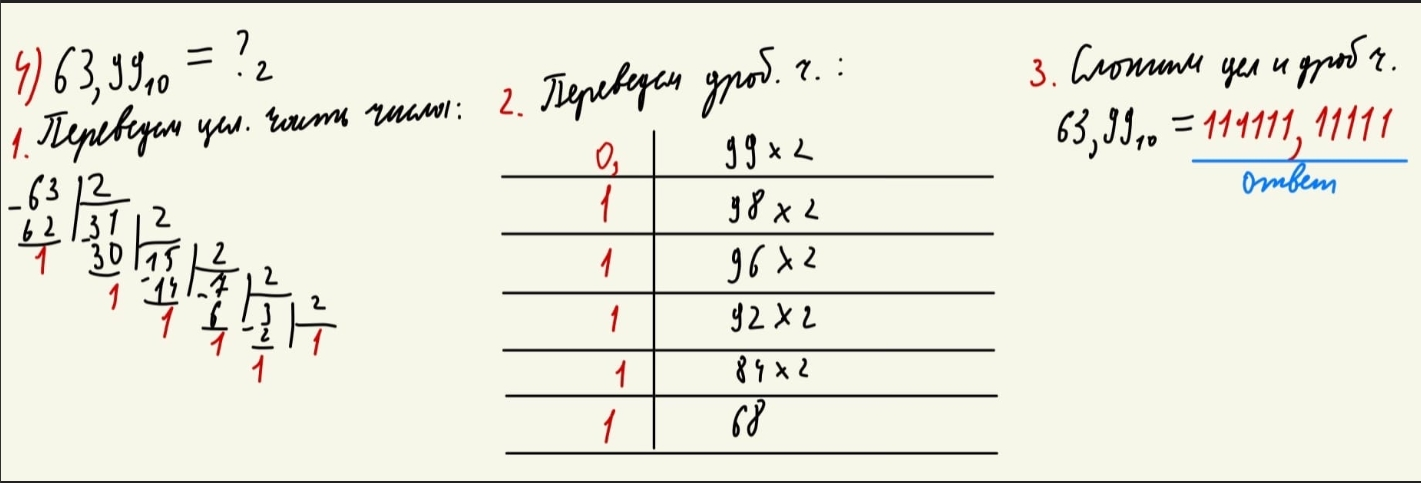 4) 63,99₁₀ = ?₂
1. Переведем цел. часть числа:
-63 | 2
62 | -31 | 2
1 | 30 | -15 | 2
1 | -14 | -7 | 2
1 | 6 | -3 | 2
1 | 2 | 1
1
2. Переведем дроб. ч. :
0, | 99 × 2
1 | 98 × 2
1 | 96 × 2
1 | 92 × 2
1 | 84 × 2
1 | 68
3. Сложим цел и дроб ч.
63,99₁₀ = 111111,11111
ответ